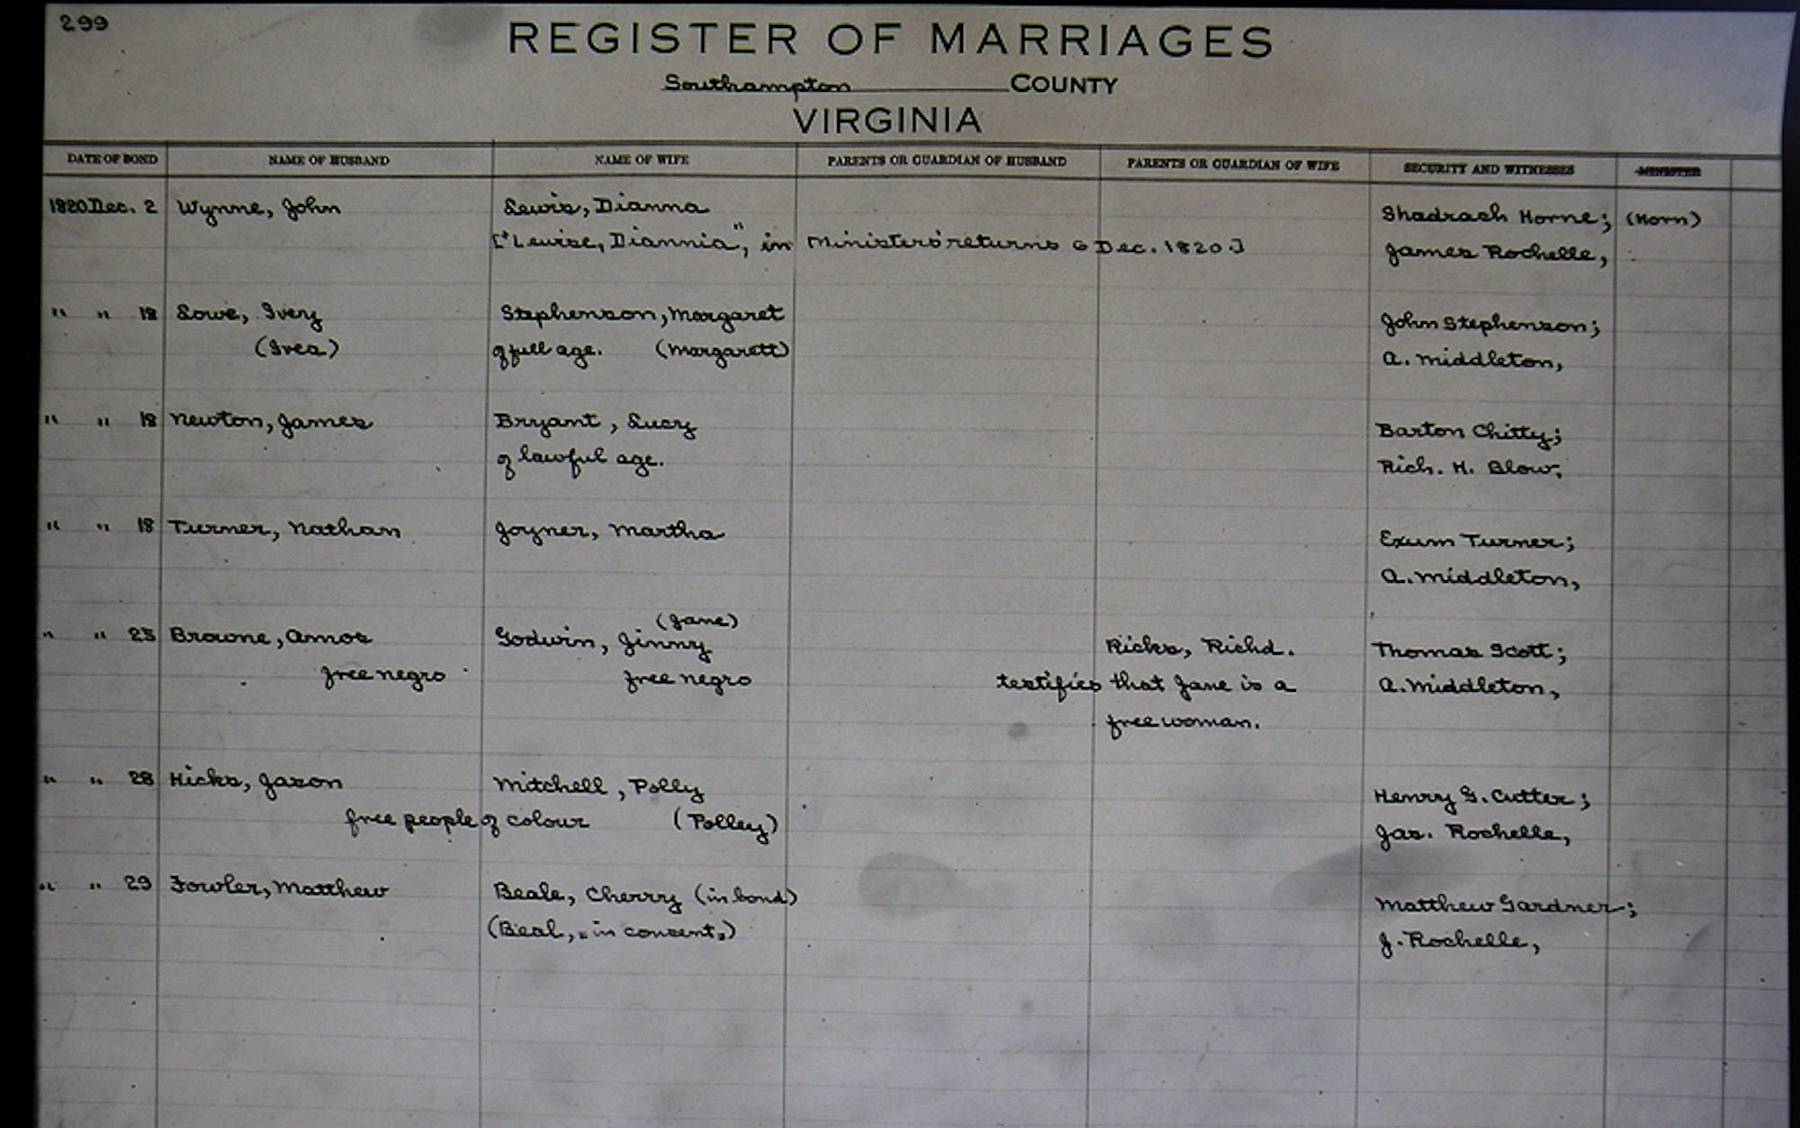 299
REGISTER OF MARRIAGES
Southampton COUNTY
VIRGINIA
DATE OF BOND NAME OF HUSBAND NAME OF WIFE PARENTS OR GUARDIAN OF HUSBAND PARENTS OR GUARDIAN OF WIFE SECURITY AND WITNESSES MINISTER
1820 Dec. 2 Wynne, John Lewis, Dianna Shadrach Horne; (Horn)
["Lewise, Diannia", in Ministers' returns 6 Dec. 1820] James Rochelle,
" " 18 Lowe, Ivey Stephenson, Margaret John Stephenson;
(Ivea) of full age. (Margarett) A. Middleton,
" " 18 Newton, James Bryant, Lucy Barton Chitty;
of lawful age. Rich. H. Blow,
" " 18 Turner, Nathan Joyner, Martha Exum Turner;
A. Middleton,
(Jane)
" " 23 Browne, Amos Godwin, Jinny Ricks, Richd. Thomas Scott;
free negro free negro testifies that Jane is a A. Middleton,
free woman.
" " 28 Hicks, Jason Mitchell, Polly Henry G. Cutter;
free people of colour (Polley) Jas. Rochelle,
" " 29 Fowler, Matthew Beale, Cherry (in bond) Matthew Gardner;
(Beal, " in consent,) J. Rochelle,